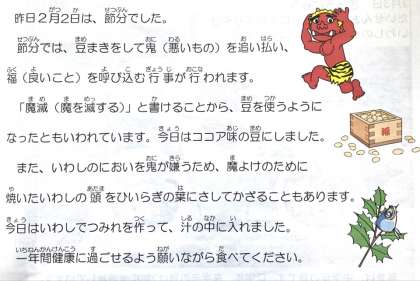 昨日2月2日は、節分でした。
節分では、豆まきをして鬼（悪いもの）を追い払い、
福（良いこと）を呼び込む行事が行われます。
「魔滅（魔を滅する）」と書けることから、豆を使うように
なったともいわれています。今日はココア味の豆にしました。
また、いわしのにおいを鬼が嫌うため、魔よけのために
焼いたいわしの頭をひいらぎの葉にさしてかざることもあります。
今日はいわしでつみれを作って、汁の中に入れました。
一年間健康に過ごせるよう願いながら食べてください。